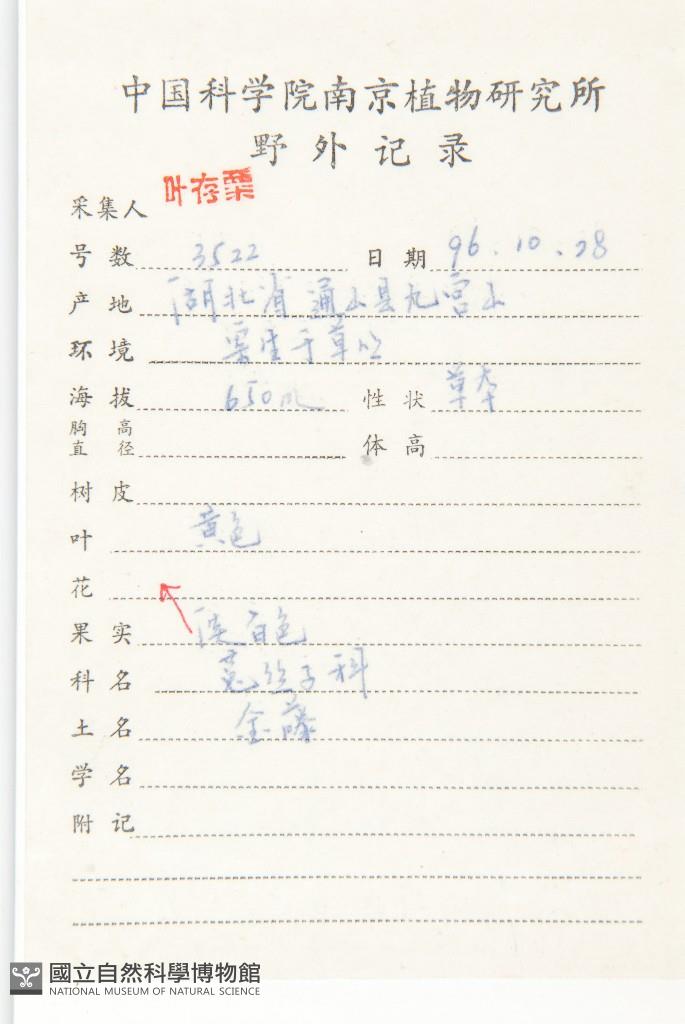 中国科学院南京植物研究所
野外记录
采集人 叶存粟
号数 3522 日期 96.10.28
产地 湖北省通山县九宫山
环境 寄生于草地
海拔 650m 性状 草本
胸高直径 体高
树皮
叶 黄色
花
果实 淡白色
科名 菟丝子科
土名 金藤
学名
附记
國立自然科學博物館
NATIONAL MUSEUM OF NATURAL SCIENCE